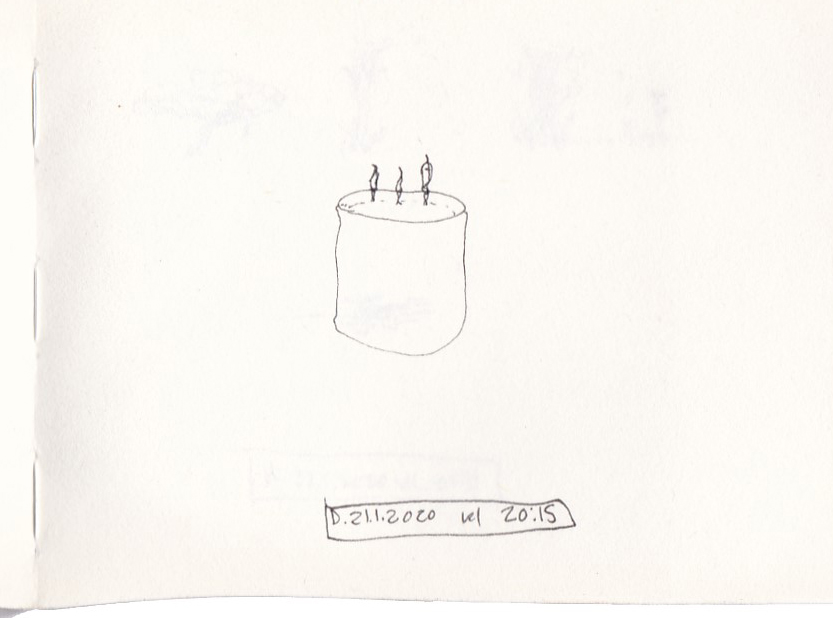 D. 21.1.2020 kl 20:15